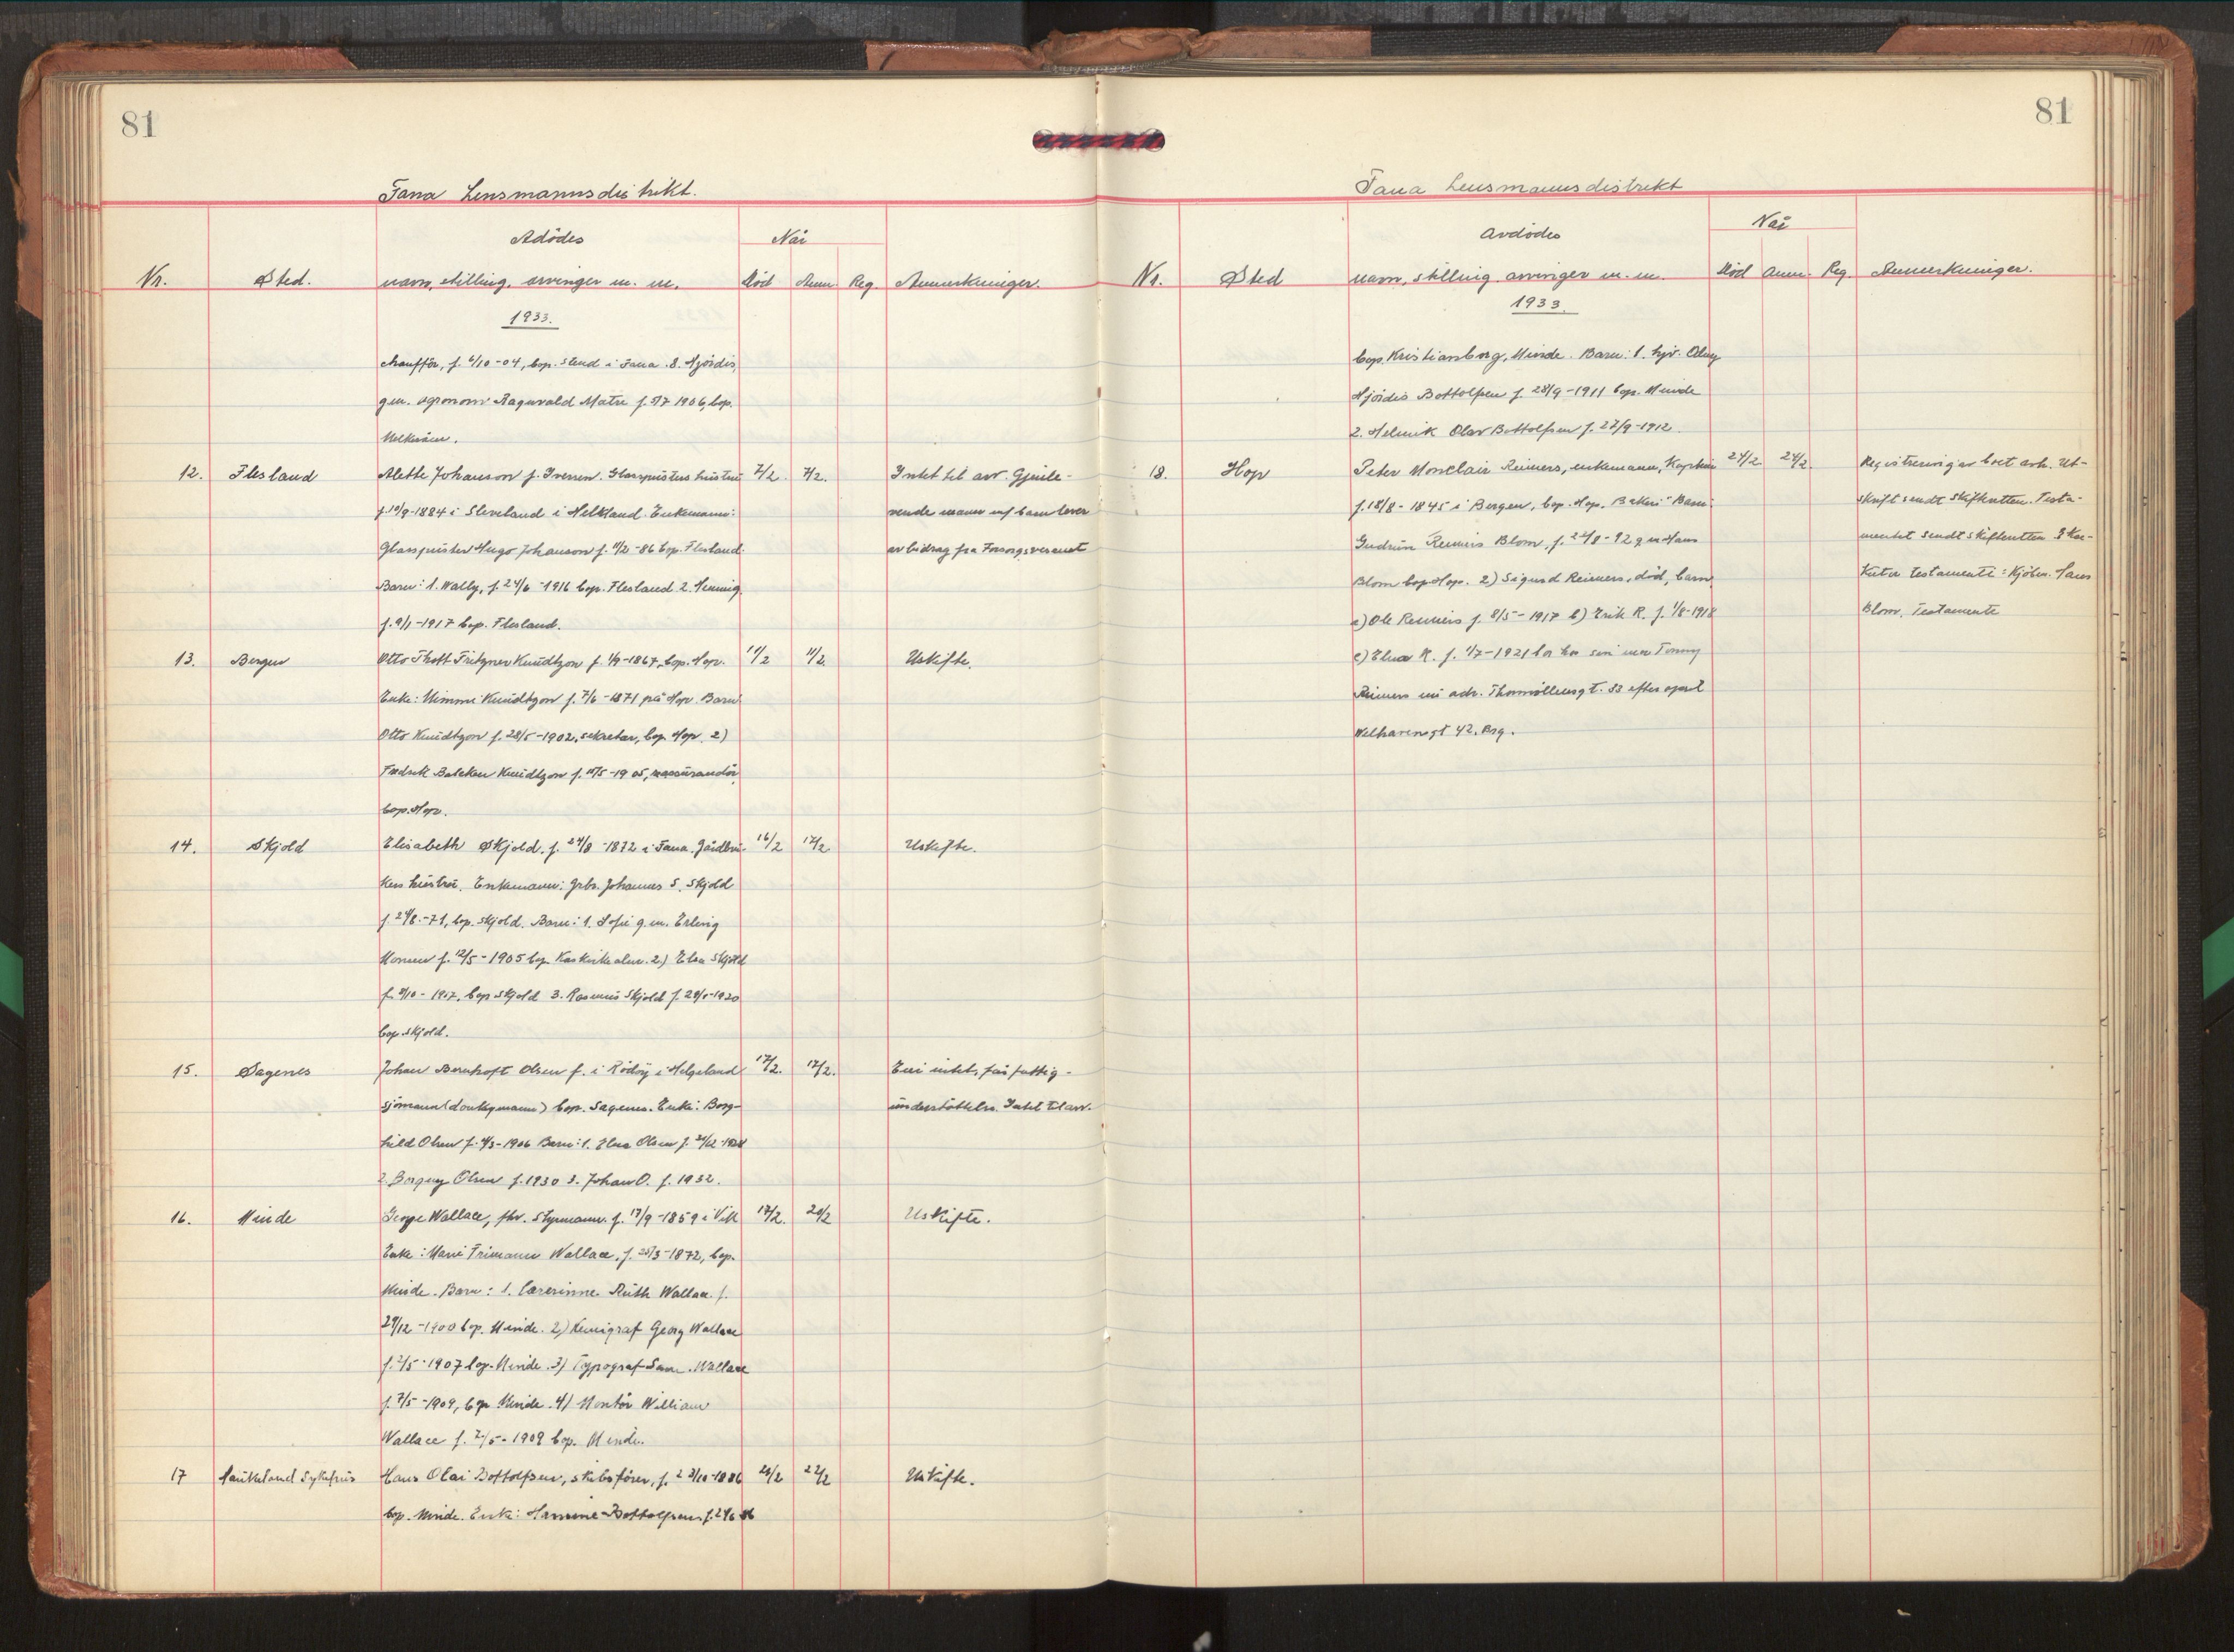 81
Fana Lensmannsdistrikt.
Adödes
Når
Nr. Sted. navn, stilling, arvinger m. m. död Anm. Reg. Anmerkninger.
1933.
chaufför, f. 6/10-04, bop. Stend i Fana. 8. Hjördis,
g.m. agronom Ragnvald Matre f. 5/7 1906, bop.
12. Flesland Alette Johanson f. Iversen. Glasspusters hustru 7/2. 7/2. Intet til arv. Gjenle-
f. 10/9-1884 i Sleveland i Enkemann: vende mann og barn lever
Glasspuster Hugo Johanson f. 11/2-86 bop. Flesland. av bidrag fra Forsorgsvesenet
Barn: 1. Wally, f. 24/6-1916 bop. Flesland 2. Henning
f. 9/1-1917 bop. Flesland.
13. Bergen Otto Thott Fritzner Knudtzon f. 1/9-1867, bop. Hop. 11/2 11/2 Uskifte.
Enke: Mimmi Knudtzon f. 7/6-1871 på Hop. Barn:
Otto Knudtzon f. 28/5-1902, sekretær, bop. Hop. 2)
Fredrik Knudtzon f. 15/5-1905,
bop. Hop.
14. Skjold Elisabeth Skjold. f. 24/8-1872 i Fana. Gårdbru- 16/2 17/2. Uskifte.
kers hustru. Enkemann: Grbr. Johannes S. Skjold
f. 24/8.-71, bop. Skjold. Barn: 1. Sofie g.m. Erling
Monsen f. 12/5-1905 bop. 2.) Elsa Skjold
f. 8/10-1907, bop. Skjold 3. Rasmus Skjold f. 1920
bop. Skjold.
15. Sagenes Johan Bernhoft Olsen f. i Rödöy i Helgeland 17/2. 17/2. Eier intet, får fattig-
sjömann (donkeymann) bop. Sagenes. Enke: Borg- understöttelse. Intet til arv.
hild Olsen f. 4/3-1906 Barn: 1. Elsa Olsen f.
2. Borgny Olsen f. 1930 3. Johan O. f. 1932.
16. Minde George Wallace, fhv. Styrmann. f. 17/9-1859 i Vik 17/2. 20/2 Uskifte.
Enke: Marie Trimann Wallace, f. 25/3-1872, bop.
Minde. Barn: 1. lærerinne Ruth Wallace f.
29/12-1900 bop. Minde. 2) Georg Wallace
f. 2/5-1907 bop. Minde. 3) Typograf Sam. Wallace
f. 7/5-1909, bop. Minde. 4) Montör William
Wallace f. 2/5-1909 bop. Minde.
17 Haukeland Sykehus Hans Olai Bottolfsen, skibsförer, f. 23/10-1886 20/2 22/2 Uskifte.
bop. Minde. Enke: Hermine Bottolfsen f.
81
Fana Lensmannsdistrikt
Avdödes
Når
Nr. Sted navn, stilling, arvinger m. m. död Anm. Reg. Anmerkninger.
1933.
bop. Kristianborg, Minde. Barn: 1.
Hjördis Bottolfsen f. 28/9-1911 bop. Minde
2. Olav Bottolfsen f. 27/9-1912.
18. Hop Peter Monclair Reimers, enkemann, Kaptein 24/2 24/2. Registrering av boet avh. Ut-
f. 18/8-1845 i Bergen, bop. Hop. Barn: skrift sendt Skifteretten. Testa-
Gudrun Reimers Blom, f. 24/8-92 g m Hans mentet sendt skifteretten
Blom bop Hop. 2) Sigurd Reimers, död, barn testamenti: Kjöbm. Hans
a) Ole Reimers f. 8/5-1917 b) Erik R. f. 1/8-1918 Blom. Testamente
c) Elna R. f. 1/7-1921 bor hos sin mor Fanny
Reimers nu adr. Thormöhlensgt. 53 efter april
Welhavensgt 42. Brg.